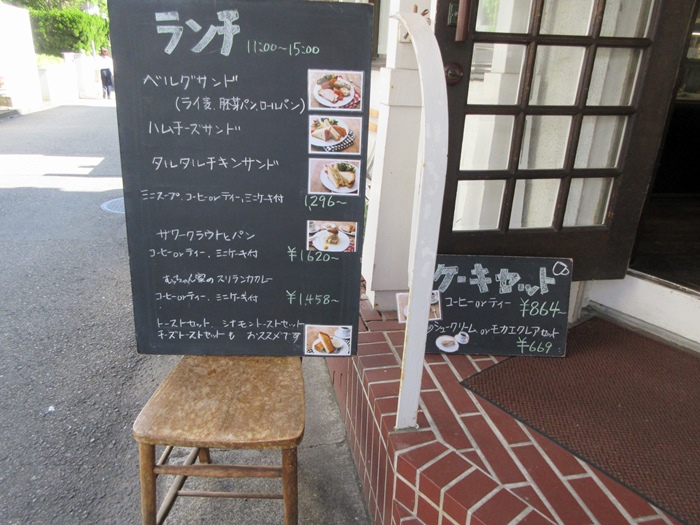 ランチ 11:00~15:00
ベルグサンド
(ライ麦、胚芽パン、ロールパン)
ハムチーズサンド
タルタルチキンサンド
ミニスープ、コーヒーorティー、ミニケーキ付 1,296~
サワークラウトとパン
コーヒーorティー、ミニケーキ付 ¥1620~
スリランカカレー
コーヒーorティー、ミニケーキ付 ¥1,458~
トーストセット、シナモントーストセット
チーズトーストセットも おススメです
ケーキセット
コーヒーorティー ¥864~
シュークリームorモカエクレアセット
¥669